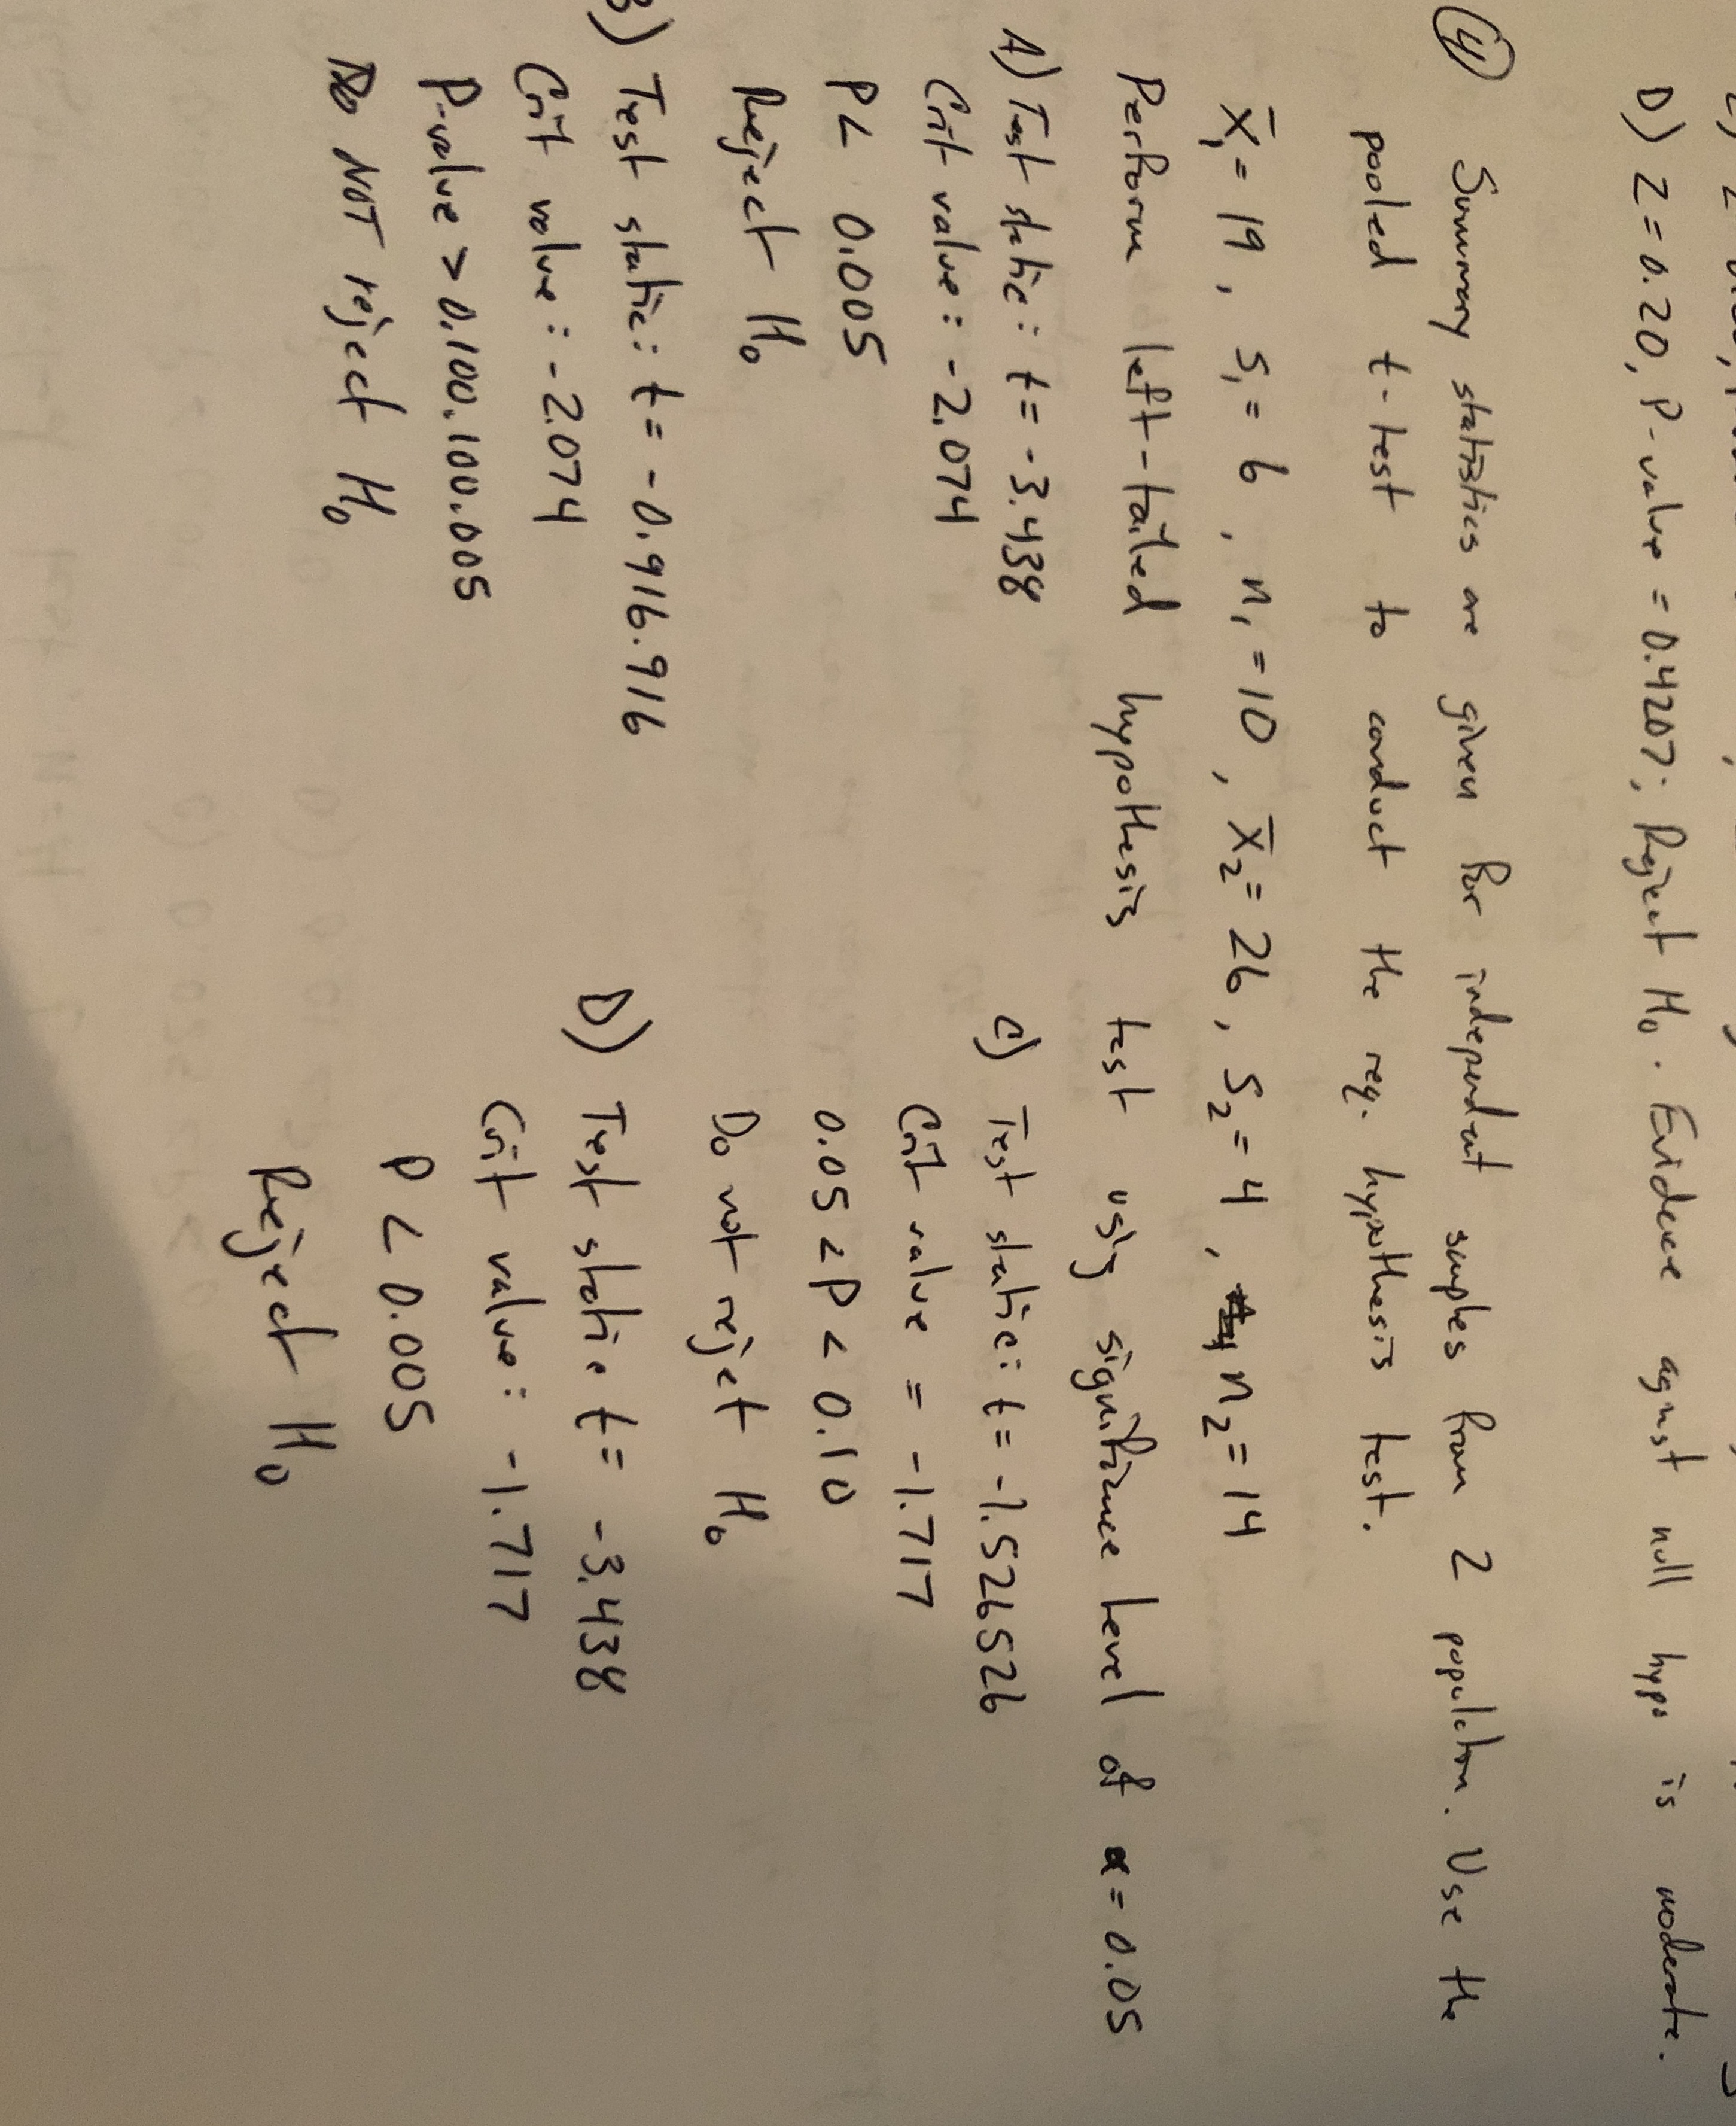 D) Z = 0.20, P-value = 0.4207; Reject H₀. Evidence agnst null hypo is moderate.
④ Summary statistics are given for independent samples from 2 population. Use the
pooled t-test to conduct the req. hypothesis test.
x̄₁ = 19, s₁ = 6, n₁ = 10, x̄₂ = 26, s₂ = 4, n₂ = 14
Perform left-tailed hypothesis test using significance level of α = 0.05
A) Test static: t = -3.438
Crit value: -2.074
P < 0.005
Reject H₀
B) Test static: t = -0.916.916
Crit value: -2.074
P-value > 0.100.100.005
Do NOT reject H₀
C) Test static: t = -1.526526
Crit value = -1.717
0.05 < P < 0.10
Do not reject H₀
D) Test static t = -3.438
Crit value: -1.717
P < 0.005
Reject H₀